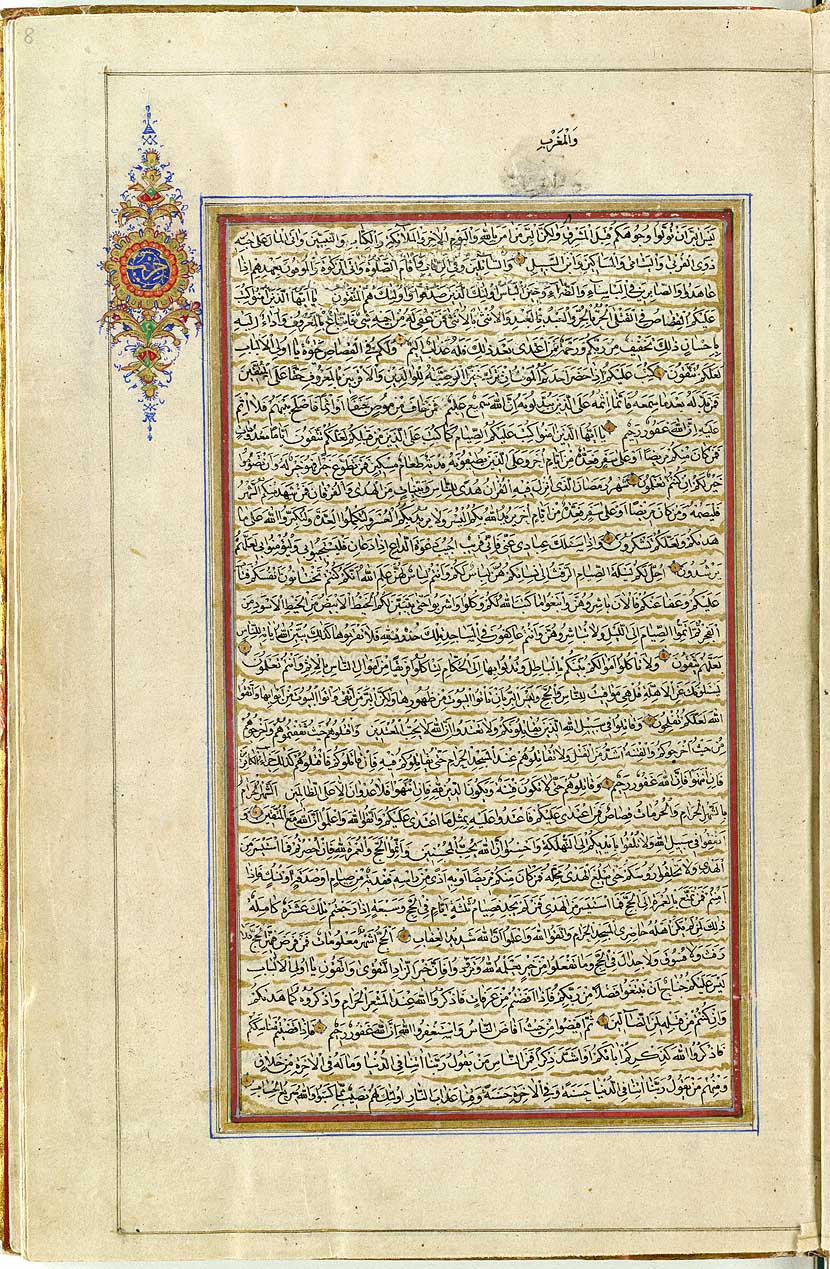 8
وَالْمَغْرِبِ
حزب
ليس البر ان تولوا وجوهكم قبل المشرق ولكن البر من امن بالله واليوم الاخر والملائكة والكتاب والنبيين واتى المال على حبه
ذوي القربى واليتامى والمساكين وابن السبيل والسائلين وفي الرقاب واقام الصلوة واتى الزكوة والموفون بعهدهم اذا
عاهدوا والصابرين في الباساء والضراء وحين الباس اولئك الذين صدقوا واولئك هم المتقون يا ايها الذين امنوا كتب
عليكم القصاص في القتلى الحر بالحر والعبد بالعبد والانثى بالانثى فمن عفي له من اخيه شيء فاتباع بالمعروف واداء اليه
باحسان ذلك تخفيف من ربكم ورحمة فمن اعتدى بعد ذلك فله عذاب اليم ولكم في القصاص حيوة يا اولي الالباب
لعلكم تتقون كتب عليكم اذا حضر احدكم الموت ان ترك خيرا الوصية للوالدين والاقربين بالمعروف حقا على المتقين
فمن بدله بعد ما سمعه فانما اثمه على الذين يبدلونه ان الله سميع عليم فمن خاف من موص جنفا او اثما فاصلح بينهم فلا اثم
عليه ان الله غفور رحيم يا ايها الذين امنوا كتب عليكم الصيام كما كتب على الذين من قبلكم لعلكم تتقون اياما معدودات
فمن كان منكم مريضا او على سفر فعدة من ايام اخر وعلى الذين يطيقونه فدية طعام مسكين فمن تطوع خيرا فهو خير له وان تصوموا
خير لكم ان كنتم تعلمون شهر رمضان الذي انزل فيه القران هدى للناس وبينات من الهدى والفرقان فمن شهد منكم الشهر
فليصمه ومن كان مريضا او على سفر فعدة من ايام اخر يريد الله بكم اليسر ولا يريد بكم العسر ولتكملوا العدة ولتكبروا الله على ما
هديكم ولعلكم تشكرون واذا سئلك عبادي عني فاني قريب اجيب دعوة الداع اذا دعان فليستجيبوا لي وليؤمنوا بي لعلهم
يرشدون احل لكم ليلة الصيام الرفث الى نسائكم هن لباس لكم وانتم لباس لهن علم الله انكم كنتم تختانون انفسكم فتاب
عليكم وعفا عنكم فالان باشروهن وابتغوا ما كتب الله لكم وكلوا واشربوا حتى يتبين لكم الخيط الابيض من الخيط الاسود من
الفجر ثم اتموا الصيام الى الليل ولا تباشروهن وانتم عاكفون في المساجد تلك حدود الله فلا تقربوها كذلك يبين الله اياته للناس
لعلهم يتقون ولا تاكلوا اموالكم بينكم بالباطل وتدلوا بها الى الحكام لتاكلوا فريقا من اموال الناس بالاثم وانتم تعلمون
يسئلونك عن الاهلة قل هي مواقيت للناس والحج وليس البر بان تاتوا البيوت من ظهورها ولكن البر من اتقى واتوا البيوت من ابوابها واتقوا
الله لعلكم تفلحون وقاتلوا في سبيل الله الذين يقاتلونكم ولا تعتدوا ان الله لا يحب المعتدين واقتلوهم حيث ثقفتموهم واخرجوهم
من حيث اخرجوكم والفتنة اشد من القتل ولا تقاتلوهم عند المسجد الحرام حتى يقاتلوكم فيه فان قاتلوكم فاقتلوهم كذلك جزاء الكافرين
فان انتهوا فان الله غفور رحيم وقاتلوهم حتى لا تكون فتنة ويكون الدين لله فان انتهوا فلا عدوان الا على الظالمين الشهر الحرام
بالشهر الحرام والحرمات قصاص فمن اعتدى عليكم فاعتدوا عليه بمثل ما اعتدى عليكم واتقوا الله واعلموا ان الله مع المتقين و
انفقوا في سبيل الله ولا تلقوا بايديكم الى التهلكة واحسنوا ان الله يحب المحسنين واتموا الحج والعمرة لله فان احصرتم فما استيسر من
الهدي ولا تحلقوا رؤسكم حتى يبلغ الهدي محله فمن كان منكم مريضا او به اذى من راسه ففدية من صيام او صدقة او نسك فاذا
امنتم فمن تمتع بالعمرة الى الحج فما استيسر من الهدي فمن لم يجد فصيام ثلثة ايام في الحج وسبعة اذا رجعتم تلك عشرة كاملة
ذلك لمن لم يكن اهله حاضري المسجد الحرام واتقوا الله واعلموا ان الله شديد العقاب الحج اشهر معلومات فمن فرض فيهن الحج فلا
رفث ولا فسوق ولا جدال في الحج وما تفعلوا من خير يعلمه الله وتزودوا فان خير الزاد التقوى واتقون يا اولي الالباب
ليس عليكم جناح ان تبتغوا فضلا من ربكم فاذا افضتم من عرفات فاذكروا الله عند المشعر الحرام واذكروه كما هديكم
وان كنتم من قبله لمن الضالين ثم افيضوا من حيث افاض الناس واستغفروا الله ان الله غفور رحيم فاذا قضيتم مناسككم
فاذكروا الله كذكركم اباءكم او اشد ذكرا فمن الناس من يقول ربنا اتنا في الدنيا وما له في الاخرة من خلاق
ومنهم من يقول ربنا اتنا في الدنيا حسنة وفي الاخرة حسنة وقنا عذاب النار اولئك لهم نصيب مما كسبوا والله سريع الحساب